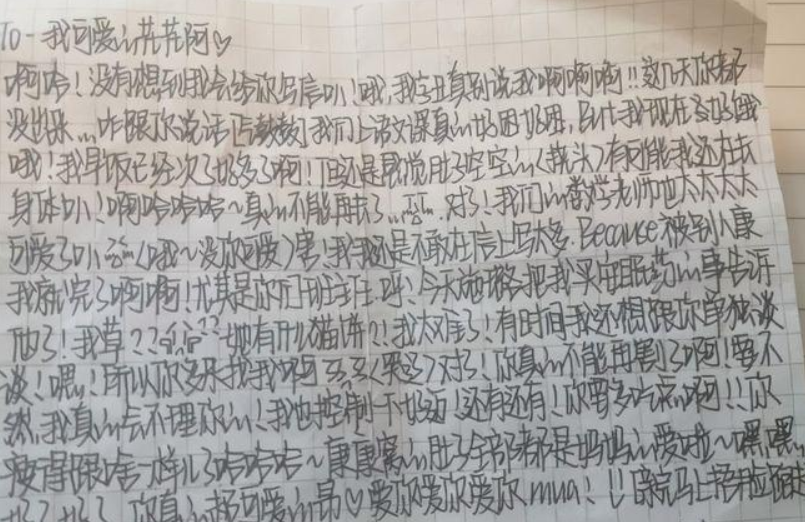 To - 我可爱的芃芃阿♡
啊哈！没有想到我会给你写信叭！哦，我字丑真别说我啊啊啊！！这几天你都
没出来...咋跟你说话 我们上语文课真的好困好困，而且我现在多好饿
哦！我早饭已经吃了好多了啊！但还是感觉肚子空空的（挠头）有可能我还在长
身体叭！啊哈哈哈~真的不能再长了... 对了！我们的数学老师也太太太太
可爱了叭（哦~没你可爱）害！我还是不敢在信上写太多. Because 被别人康
我就完了啊啊！尤其是你们班主任. 呼！今天她把我买安眠药的事告诉
他了！我草？？她有什么猫饼？！我太难了！有时间我还想跟你单独谈
谈！嘿！所以你多来找我啊（乘3）对了！你真的不能再割了啊！要不
然，我真的会不理你的！我也控制不好面！还有还有！你要多吃点啊！！你
瘦得跟啥一样儿了哈哈哈~康康窝的肚子全部都是妈妈的爱啦~嘿嘿，
好了好了 你真的超可爱的昂♡爱你爱你爱你 mua！!! 马上